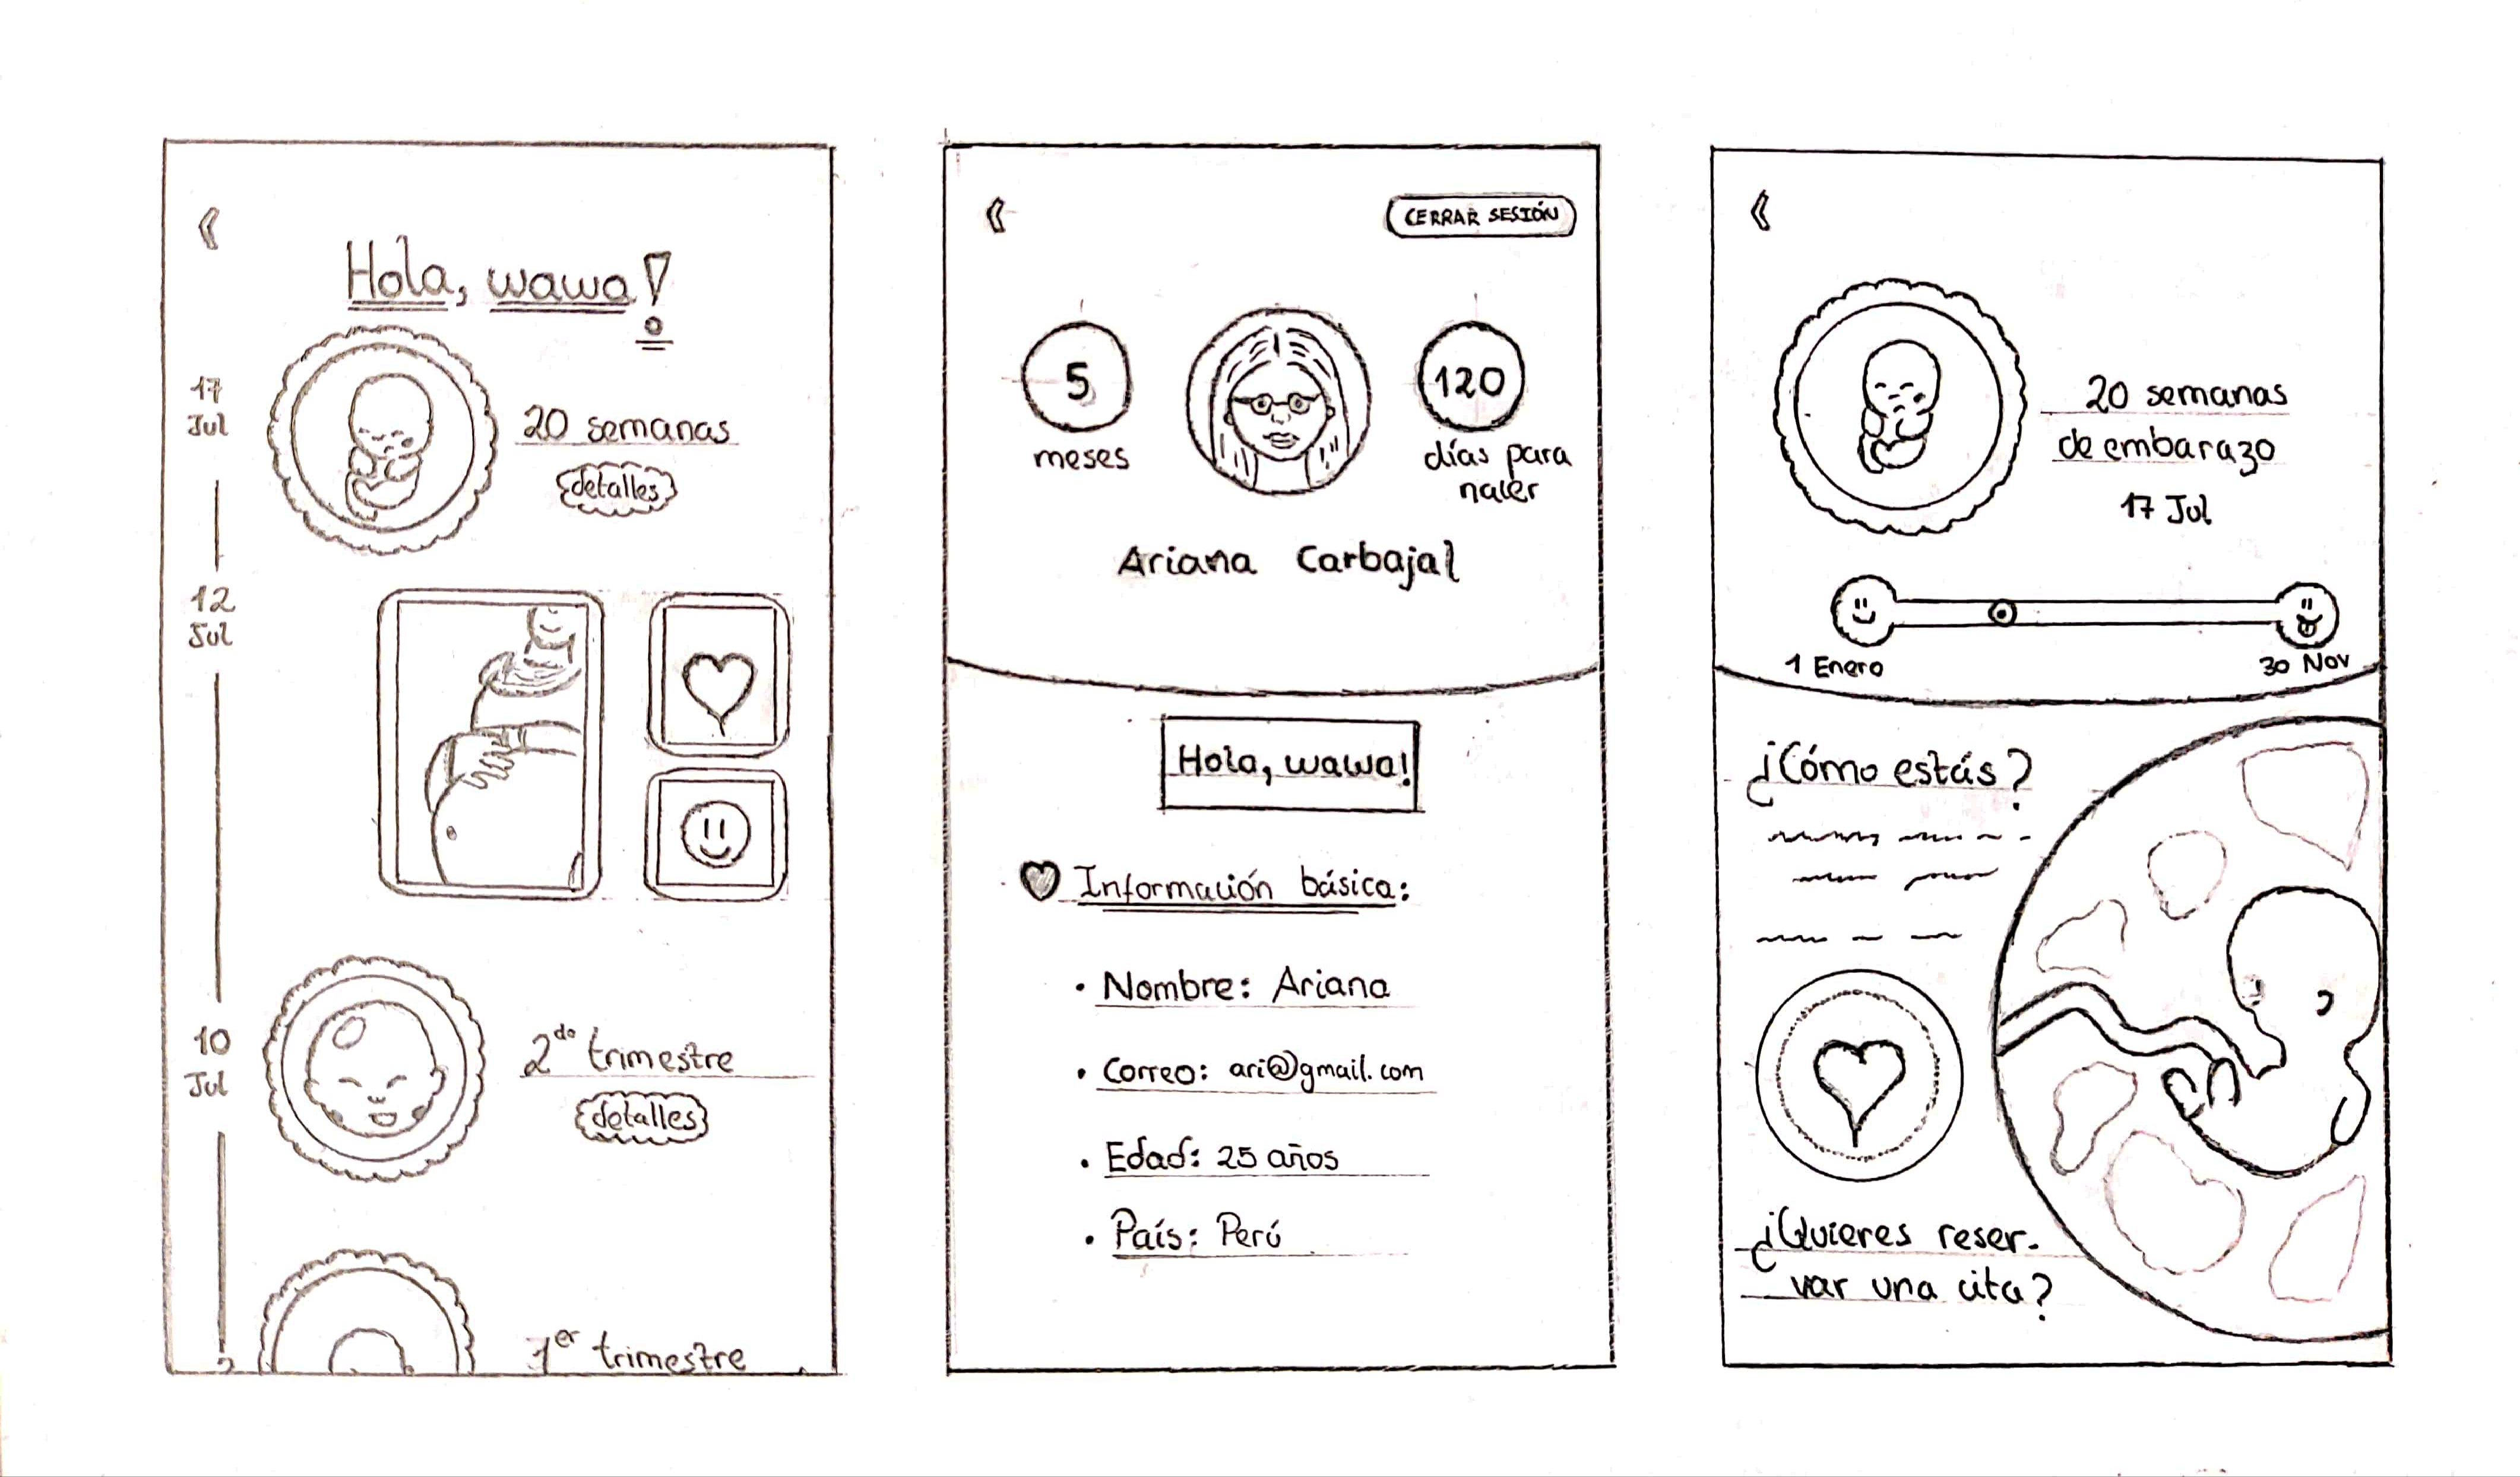 Hola, wawa!
17
Jul
20 semanas
detalles
12
Jul
10
Jul
2do trimestre
detalles
1er trimestre
CERRAR SESIÓN
5
meses
120
días para
nacer
Ariana Carbajal
Hola, wawa!
Información básica:
• Nombre: Ariana
• Correo: ari@gmail.com
• Edad: 25 años
• País: Perú
20 semanas
de embarazo
17 Jul
1 Enero
30 Nov
¿Cómo estás?
¿Quieres reser-
var una cita?